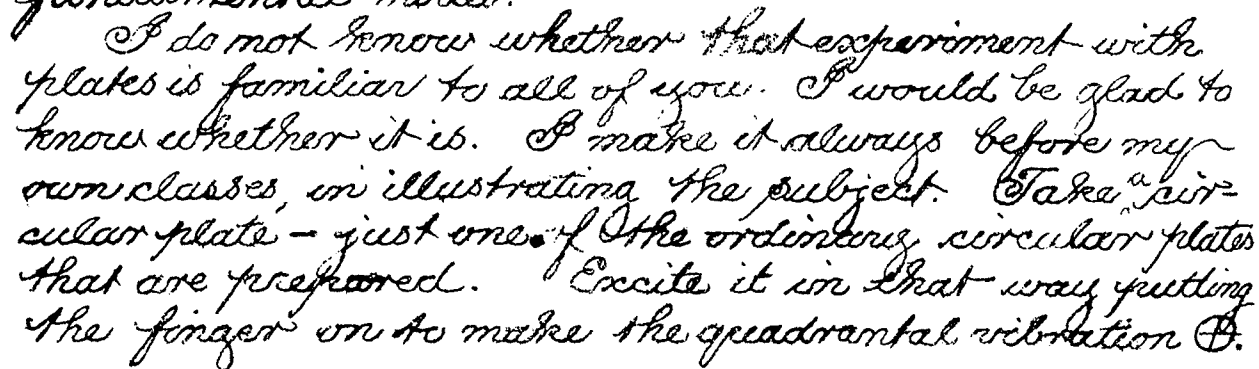 fundamental modes.
I do not know whether that experiment with
plates is familiar to all of you. I would be glad to
know whether it is. I make it always before my
own classes, in illustrating the subject. Take a cir-
cular plate – just one of the ordinary circular plates
that are prepared. Excite it in that way putting
the finger on to make the quadrantal vibration ⊕.